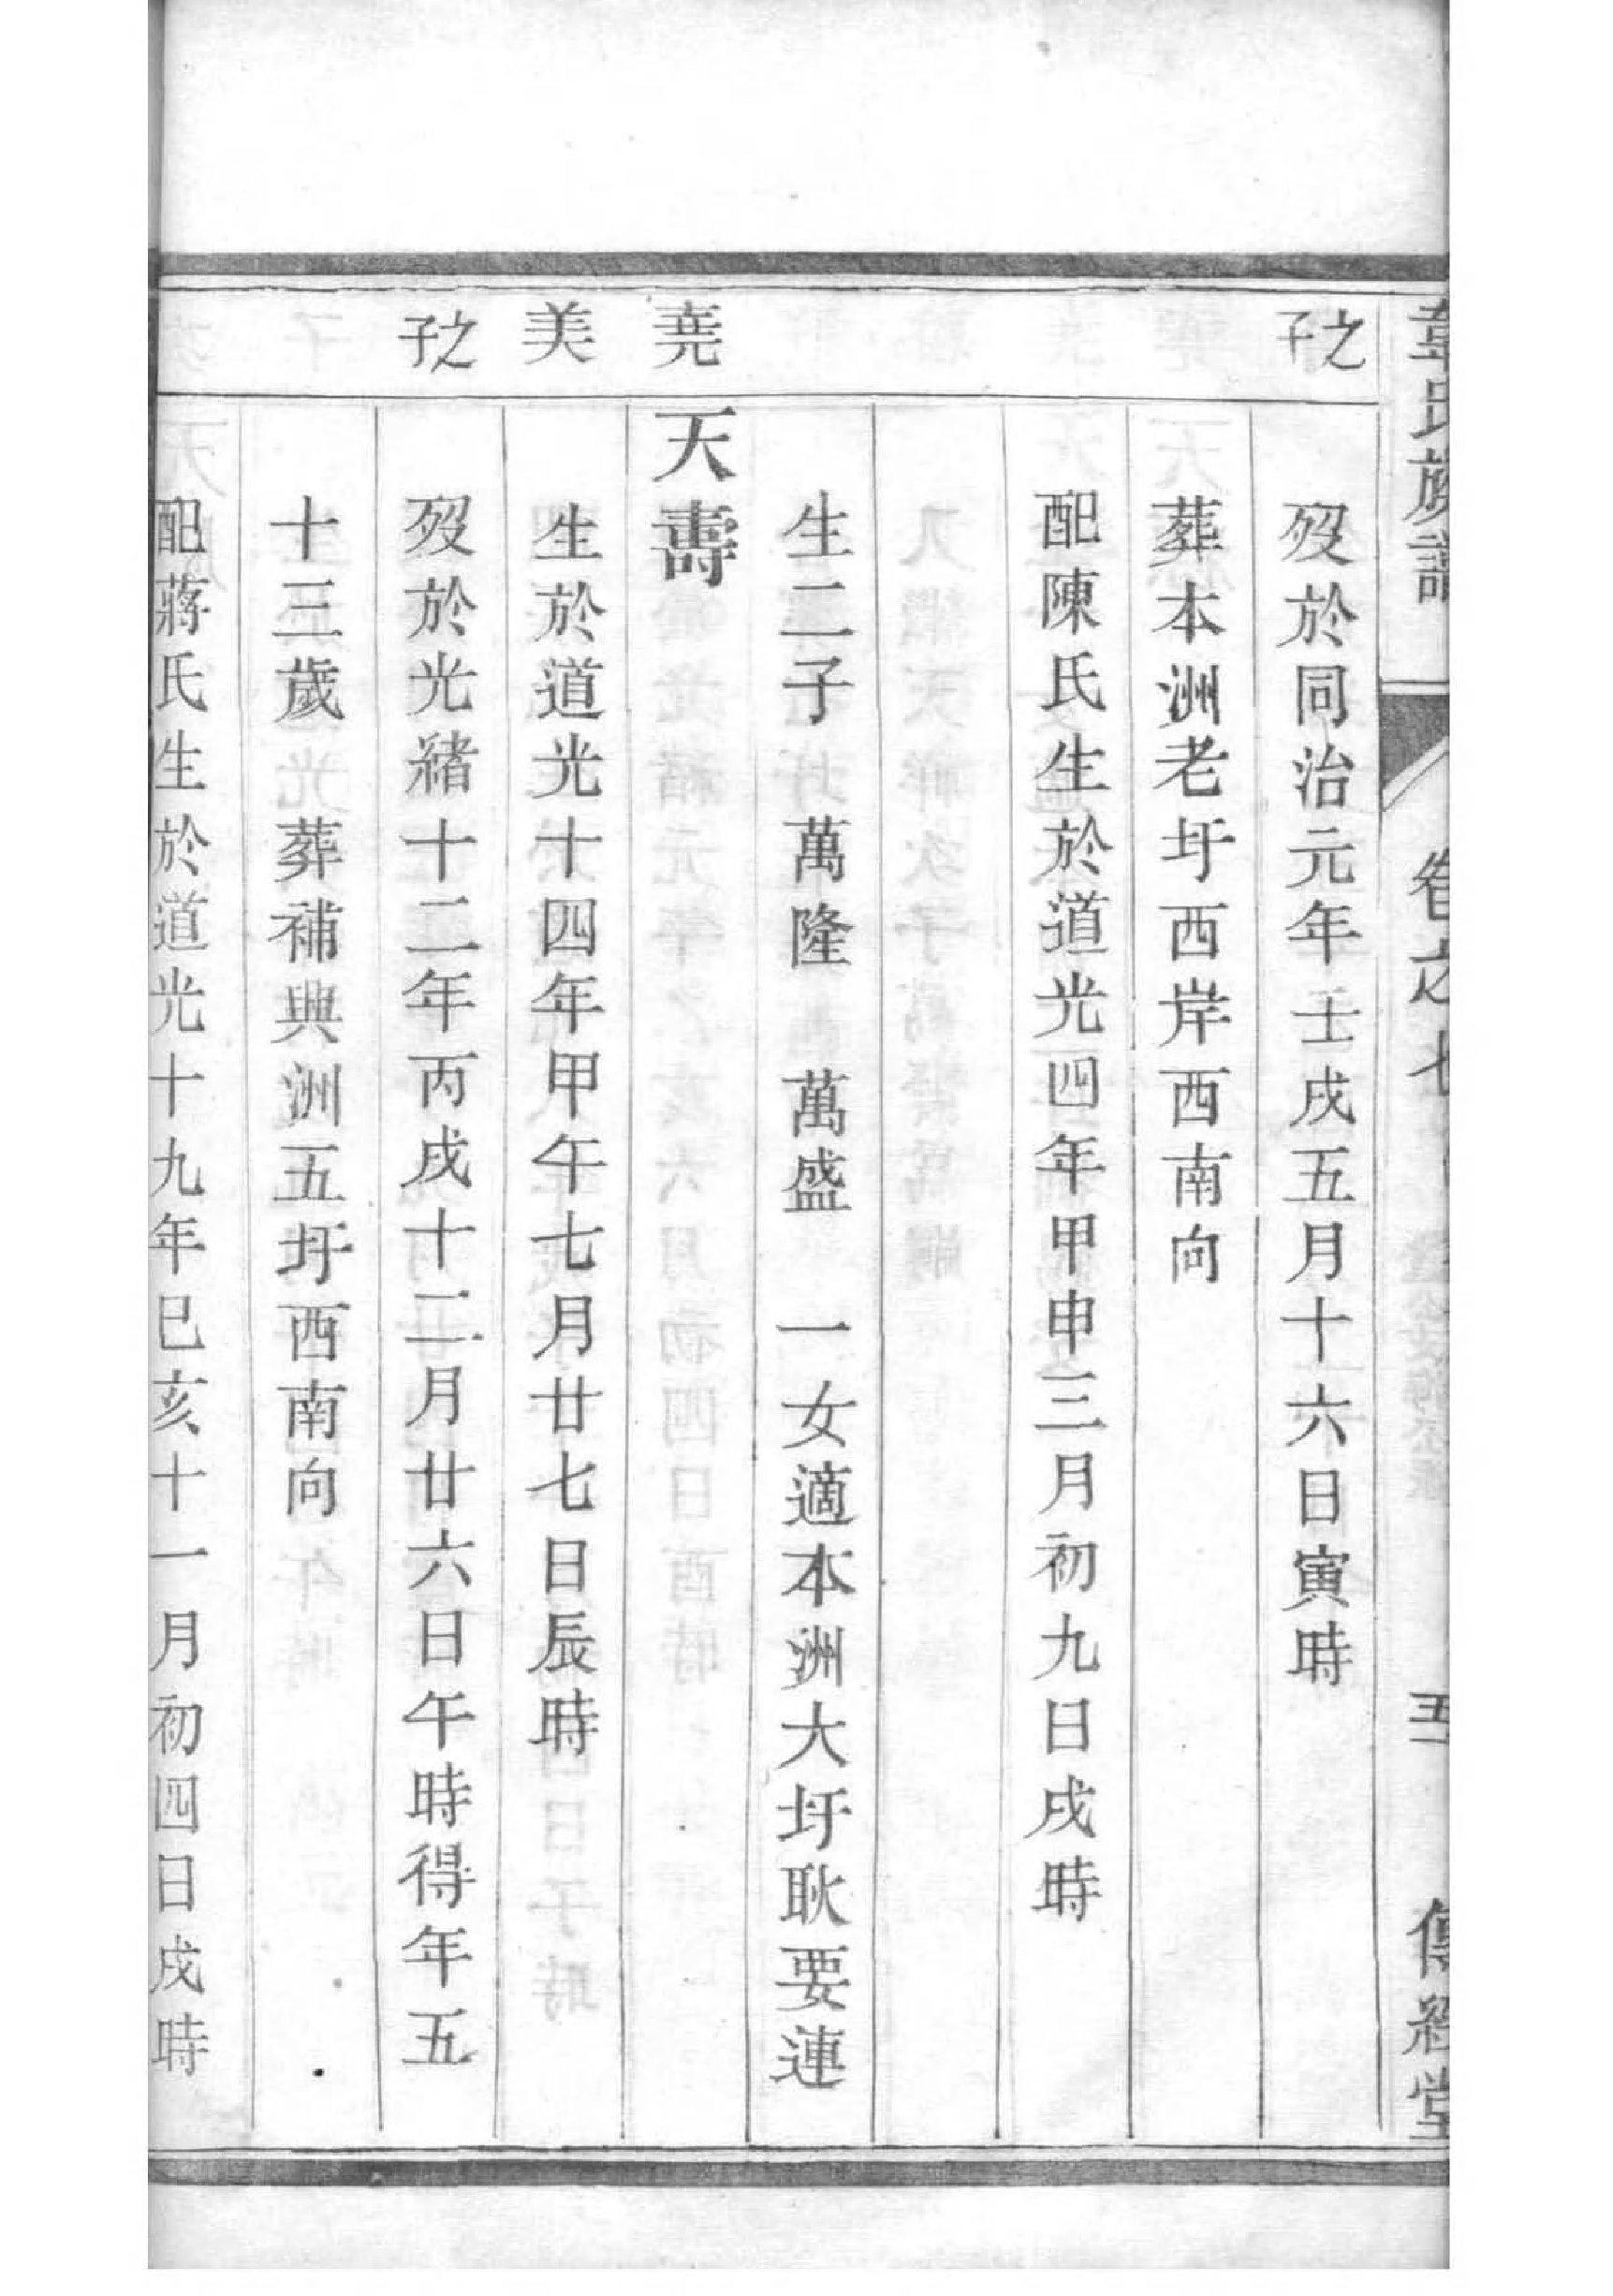 韋氏族譜 卷之七 五 傳經堂
之子
歿於同治元年壬戌五月十六日寅時
葬本洲老圩西岸西南向
配陳氏生於道光四年甲申三月初九日戌時
生二子 萬隆 萬盛 一女適本洲大圩耿要連
堯
天壽
美
生於道光十四年甲午七月廿七日辰時
之子
歿於光緒十二年丙戌十二月廿六日午時得年五
十三歲 葬補興洲五圩西南向
配蔣氏生於道光十九年巳亥十一月初四日戌時